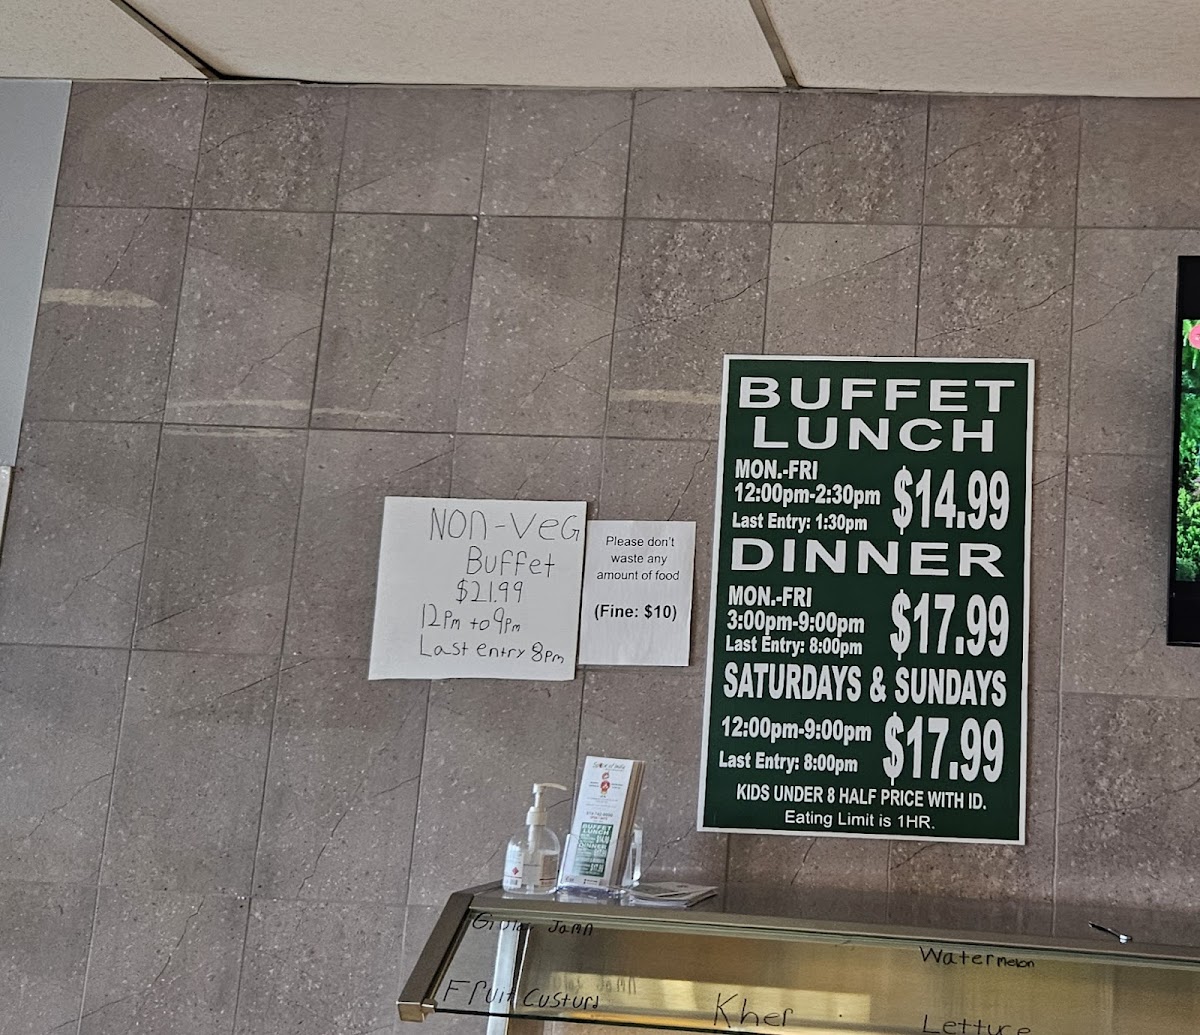 NON-VEG
Buffet
$21.99
12Pm to 9Pm
Last entry 8pm
Please don't
waste any
amount of food
(Fine: $10)
BUFFET
LUNCH
MON.-FRI
12:00pm-2:30pm
$14.99
Last Entry: 1:30pm
DINNER
MON.-FRI
3:00pm-9:00pm
$17.99
Last Entry: 8:00pm
SATURDAYS & SUNDAYS
12:00pm-9:00pm
$17.99
Last Entry: 8:00pm
KIDS UNDER 8 HALF PRICE WITH ID.
Eating Limit is 1HR.
BUFFET
LUNCH
DINNER
Jamn
Watermelon
Fruit Custurd
Kher
Lettuce